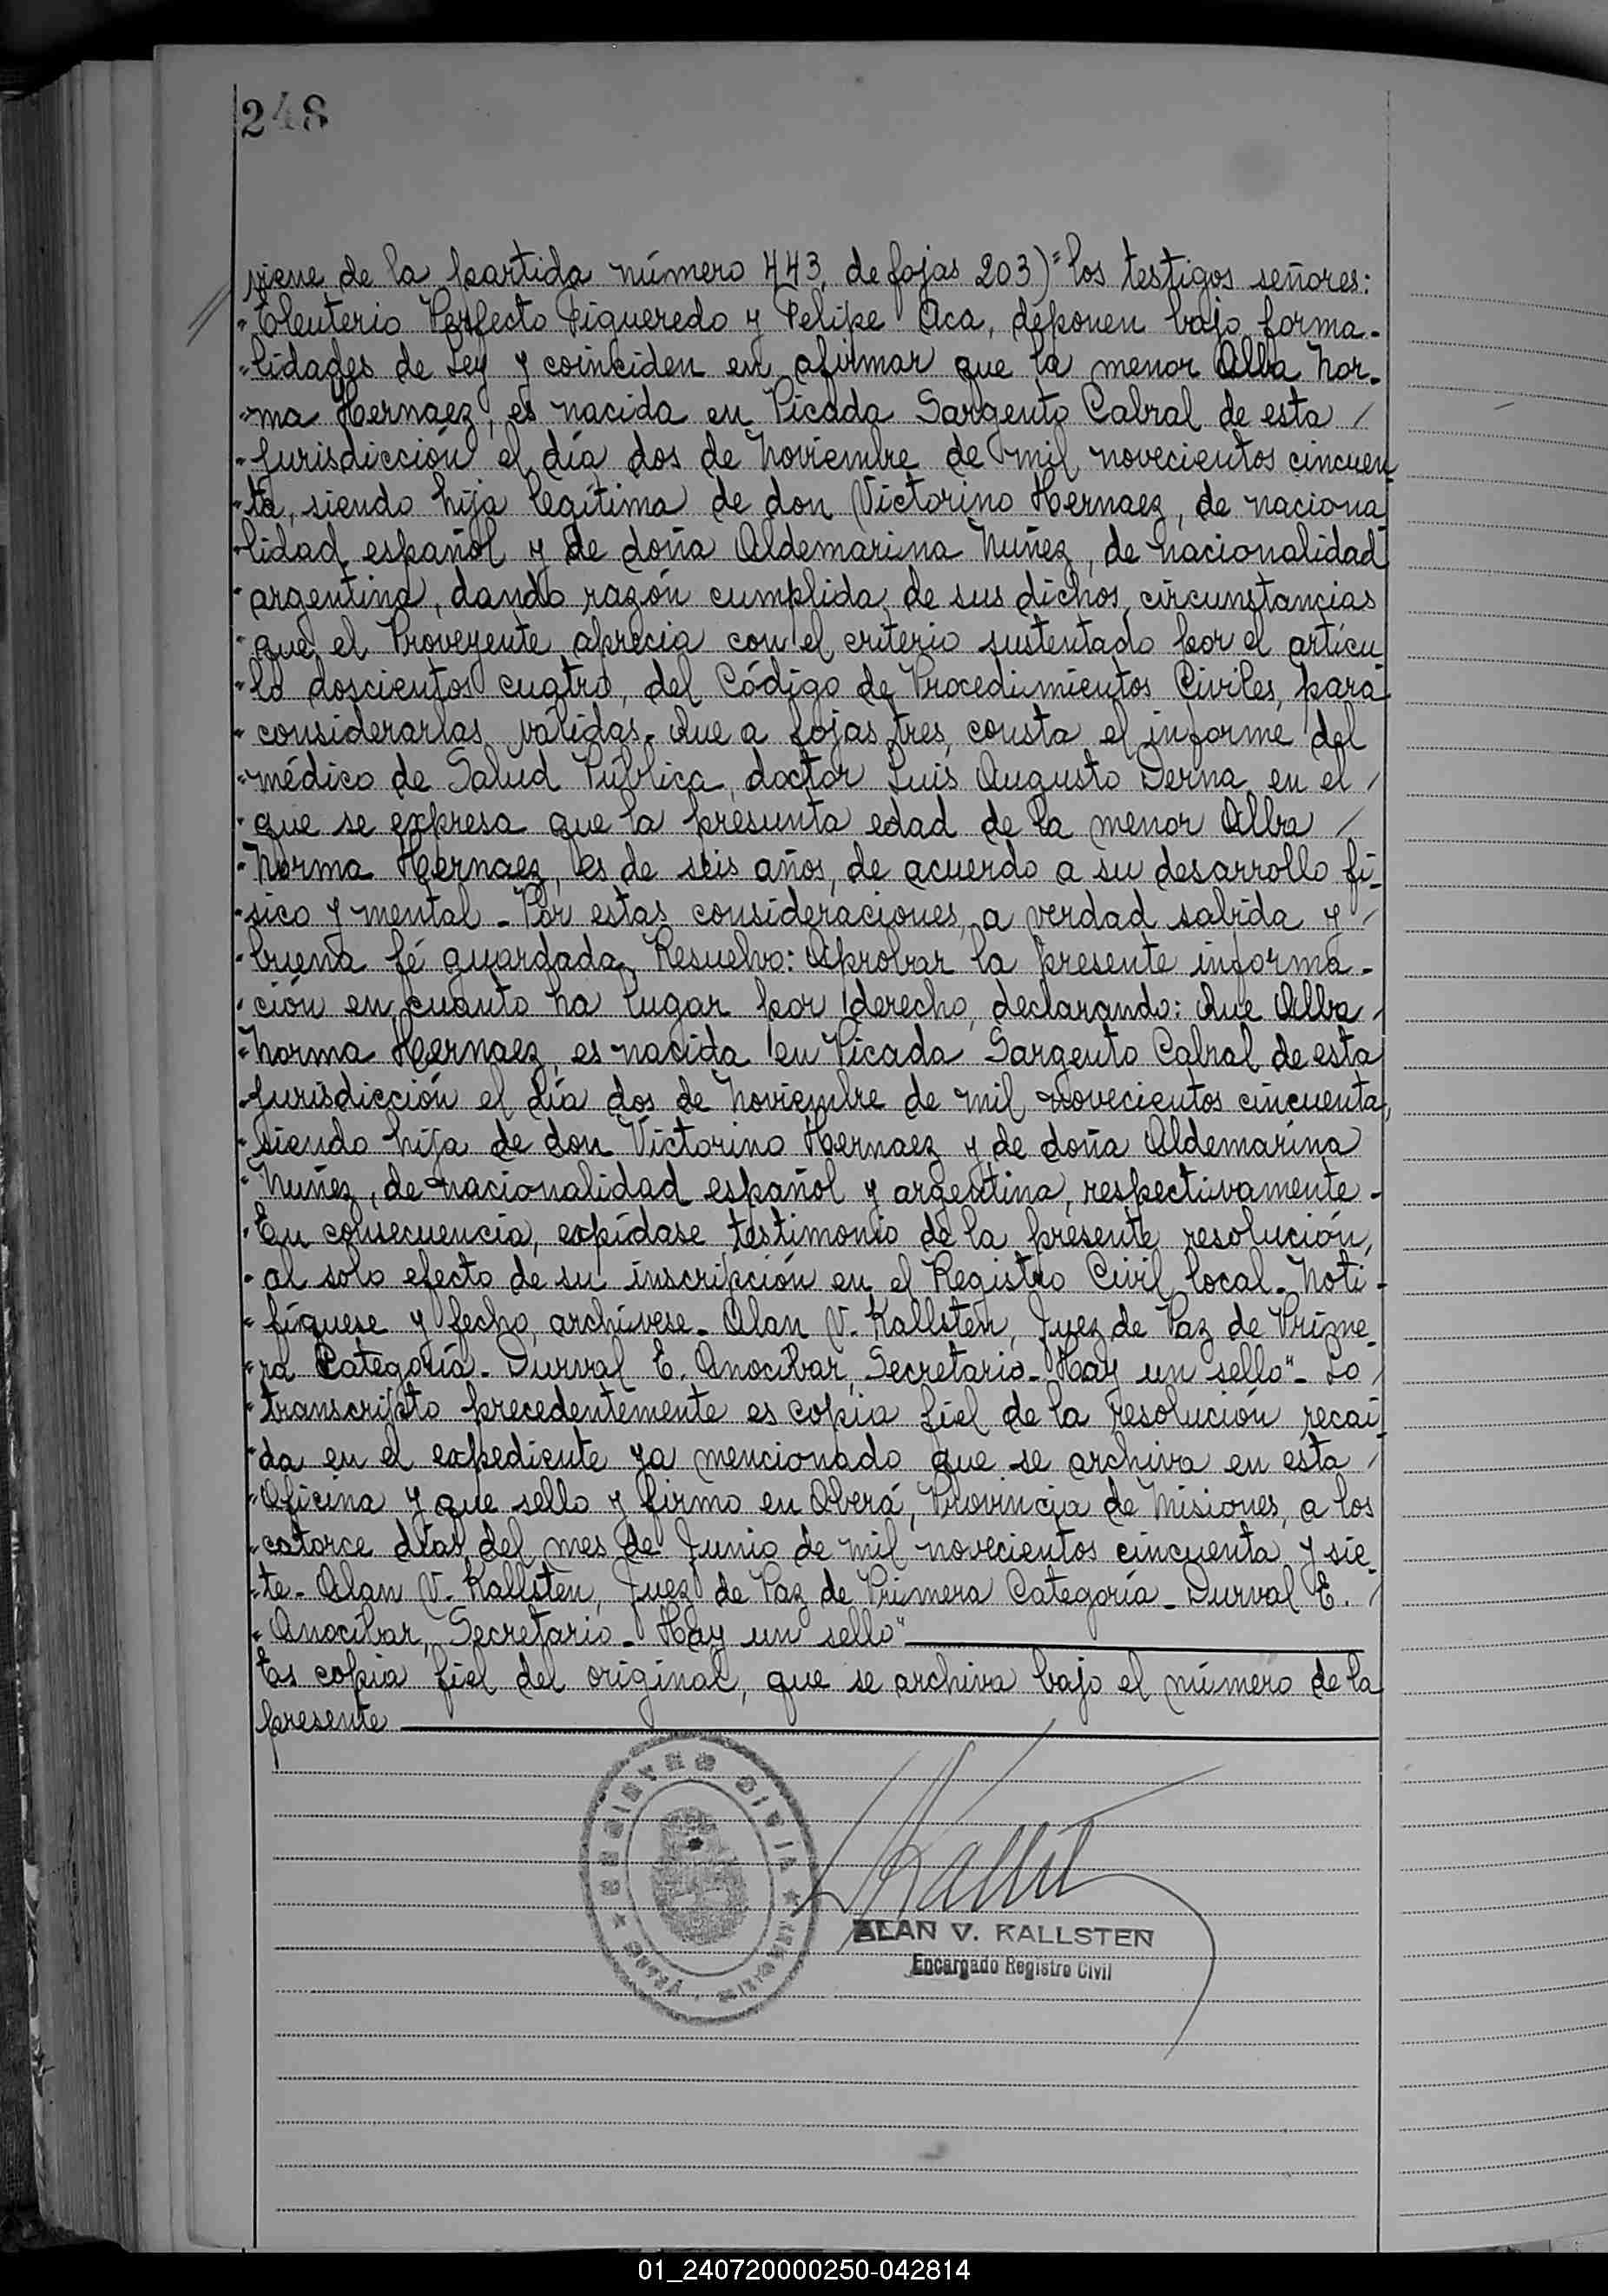 248
viene de la partida número 443, de fojas 203) "los testigos señores:
"Eleuterio Perfecto Figueredo y Felipe Aca, deponen bajo forma-
"lidades de Ley y coinciden en afirmar que la menor Alba Nor-
"ma Hernaez, es nacida en Picada Sargento Cabral de esta /
"jurisdicción el día dos de Noviembre de mil novecientos cincuen
"ta, siendo hija legítima de don Victorino Hernaez, de naciona
"lidad español y de doña Aldemarina Nuñez, de nacionalidad
"argentina, dando razón cumplida de sus dichos, circunstancias
"que el Proveyente aprecia con el criterio sustentado por el artícu
"lo doscientos cuatro, del Código de Procedimientos Civiles, para
"considerarlas válidas. Que a fojas tres, consta el informe del
"médico de Salud Pública, doctor Luis Augusto Derna, en el /
"que se expresa que la presunta edad de la menor Alba /
"Norma Hernaez, es de seis años, de acuerdo a su desarrollo fí-
"sico y mental. Por estas consideraciones, a verdad sabida y /
"buena fé guardada, Resuelvo: Aprobar la presente informa-
"ción en cuanto ha lugar por derecho, declarando: Que Alba /
"Norma Hernaez, es nacida en Picada Sargento Cabral de esta
"jurisdicción el día dos de Noviembre de mil novecientos cincuenta,
"siendo hija de don Victorino Hernaez y de doña Aldemarina
"Nuñez, de nacionalidad español y argentina, respectivamente.
"En consecuencia, expídase testimonio de la presente resolución,
"al solo efecto de su inscripción en el Registro Civil local. Noti-
"fíquese y fecho, archívese. Alan V. Kallsten, Juez de Paz de Prime
"ra Categoría. Durval E. Anocibar, Secretario. Hay un sello". Lo /
"transcripto precedentemente es copia fiel de la resolución recaí
"da en el expediente ya mencionado que se archiva en esta /
"Oficina y que sello y firmo en Oberá, Provincia de Misiones, a los
"catorce días del mes de Junio de mil novecientos cincuenta y sie
"te. Alan V. Kallsten, Juez de Paz de Primera Categoría. Durval E. /
"Anocibar, Secretario. Hay un sello"
Es copia fiel del original, que se archiva bajo el número de la
presente
REGISTRO CIVIL
ALAN V. KALLSTEN
Encargado Registro Civil
01_240720000250-042814